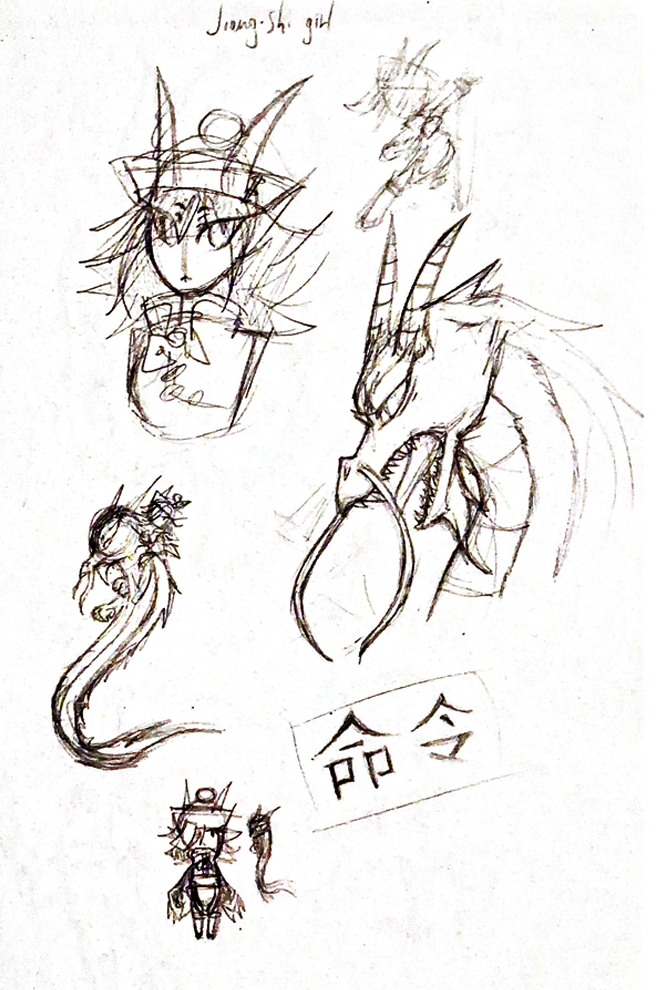 Jiong-shi girl
命令